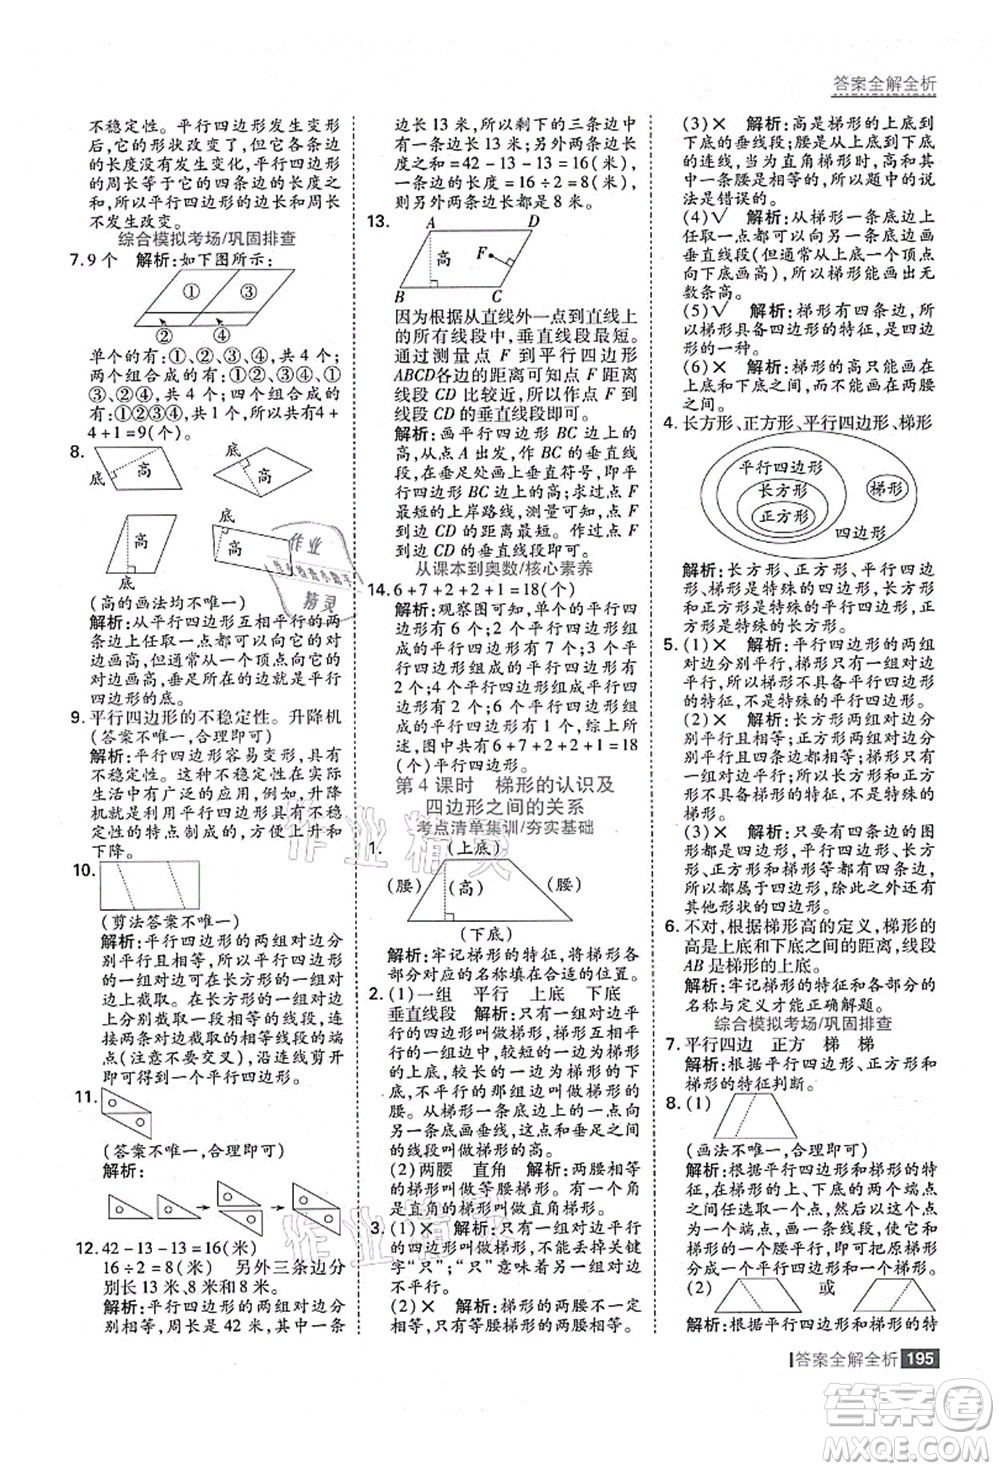 答案全解全析
不稳定性。平行四边形发生变形
后,它的形状改变了,但各条边
的长度没有发生变化,平行四边形
的周长等于它的四条边的长度之
和,所以平行四边形的边长和周长
不发生改变。
综合模拟考场/巩固排查
7.9个 解析:如下图所示:
① ③
② ④
单个的有:①、②、③、④共4个;
两个组合成的有:①②、③④、
①③、②④共4个;四个组合成的
有:①②③④共1个。所以共有4+
4+1=9(个)。
8.
底 高 高 底
高 底 底 高
(高的画法均不唯一)
解析:从平行四边形互相平行的两
条边上任取一点都可以向它的对
边画高,但通常从一个顶点向它的
对边画高,垂足所在的边是平行
四边形的底。
9.平行四边形的不稳定性。升降机
(答案不唯一,合理即可)
解析:平行四边形容易变形,具有
不稳定性。这种不稳定性在实际
生活中应用广泛。如升降机
就是利用平行四边形的不稳
定性的特点制成的,方便升与
下降。
10.
(剪法答案不唯一)
解析:平行四边形的两组对边分别
平行且相等,所以可以在一组对
边上截取。可以在长方形的一组对
边上分别截取一段相等的线段,再
将两条对边截取的相等线段的端
点(注意不要交叉),沿连线剪开
即可得到一个平行四边形。
11.
(答案不唯一,合理即可)
解析:
12.42-13-13=16(米)
16÷2=8(米) 另外三条边分
别长13米、8米、8米。
解析:平行四边形的两组对边分别
相等,周长是42米,其中一条
边长13米,所以剩下的三条边中有
一条边长13米;另外两条边的
长度之和=42-13-13=16(米),
一条边的长度=16÷2=8(米),
则另外两条边长都是8米。
13.
A D
高 F
B C
因为根据从直线外一点到直线上
的所有线段中,垂直线段最短。
通过测量点F到平行四边形
ABCD各边的距离可知点F到
线段CD比较近,所以画出点F到
线段CD的垂直线段即可。
解析:画平行四边形BC边上的
高,从点A出发,向BC边作垂直线
段,在垂足处画出垂直符号,即平
行四边形BC边上的高;求过点F
的最短上岸路线,需测量点F到平
行四边形各边的距离,测量可知点F
到边CD的距离最短,所以需作点
F到边CD的垂直线段。
从课本到奥数/核心素养
14.6+7+2+2+1=18(个)
解析:观察图可知,单个的平行四边
形有6个;2个平行四边形组
成的平行四边形有7个;3个平行
四边形组成的平行四边形有
2个;4个平行四边形组
成的平行四边形有2个;6个平行
四边形组成的有1个,综上所
述,图中共有6+7+2+2+1=18
(个)平行四边形。
第4课时 梯形的认识及
四边形之间的关系
考点清单集训/夯实基础
1.
(上底)
(腰) (高) (腰)
(下底)
解析:牢记梯形的特征,将梯形各
部分对应的名称填在合适的位置。
2.(1)一组 平行 上底 下底
垂直线段 解析:只有一组对边平
行的四边形叫做梯形,梯形互相平
行的边中,较短的一边叫做梯形的
上底,较长的一边叫做梯形的下底,
不平行的那组对边叫做梯形的
腰。从梯形上底的一点向
下底画垂线,这点和垂足之间的
线段叫做梯形的高。
(2)两腰 直角 解析:两腰相等的
梯形叫做等腰梯形,有一个角是
直角的梯形叫做直角梯形。
3.(1)× 解析:只有一组对边平行
的四边形叫做梯形,不能丢掉关键
字“只”;“只”字表示另一组对边
不平行。
(2)× 解析:梯形的两底不相等,
(3)× 解析:高是梯形的上底到
下底的垂直线段,腰是上底到下底
的连线,当为直角梯形时,高和其中
一条腰是相等的,所以题中的说
法是错误的。
(4)√ 解析:从梯形一条底边上
任取一点都可以向它的对边画
垂直线段(但通常从上底的一个顶点
向下底画高),所以梯形能画出无
数条高。
(5)√ 解析:梯形有四条边,所
以梯形具备四边形的特征,是四边
形的一种。
(6)× 解析:梯形的高只能画在
上底和下底之间,而不能画在两腰
之间。
4.长方形、正方形、平行四边形、梯形
平行四边形
长方形 梯形
正方形 四边形
解析:长方形、正方形、平行四边
形、梯形是特殊的四边形,长方
形和正方形是特殊的平行四边形,正
方形是特殊的长方形。
5.(1)× 解析:平行四边形的两组
对边分别平行,梯形只有一组对边平
行,所以梯形不具备平行四边形
的特征,不是特殊的平行四边形。
(2)× 解析:长方形两组对边分
别平行,而梯形只有一组对边平
行,所以长方形不具备梯形的特
征,不是特殊的梯形。
(3)× 解析:只要有四条边的图
形都是四边形,所以四边形
除了所列出的长方形等,还包括
很多其他形状的四边形。
6.不对,根据梯形高的定义,梯形的
高是上底和下底之间的距离,线段
AB是梯形的上底。
解析:牢记梯形的特征和各部分的
名称与定义才能正确解题。
综合模拟考场/巩固排查
7.平行四边 正方 梯 梯
解析:根据平行四边形、正方形和
梯形的特征判断。
8.(1)
(画法不唯一,合理即可)
解析:根据平行四边形和梯形的特
征,在梯形的上、下底的两个端点
之间任意选一点,然后连接另一个
点,画出一条线段,使它和
梯形的一条腰平行即可。
(2) 或
解析:根据平行四边形和梯形的特
答案全解全析 195
作业精灵
答案圈
MXQE.COM